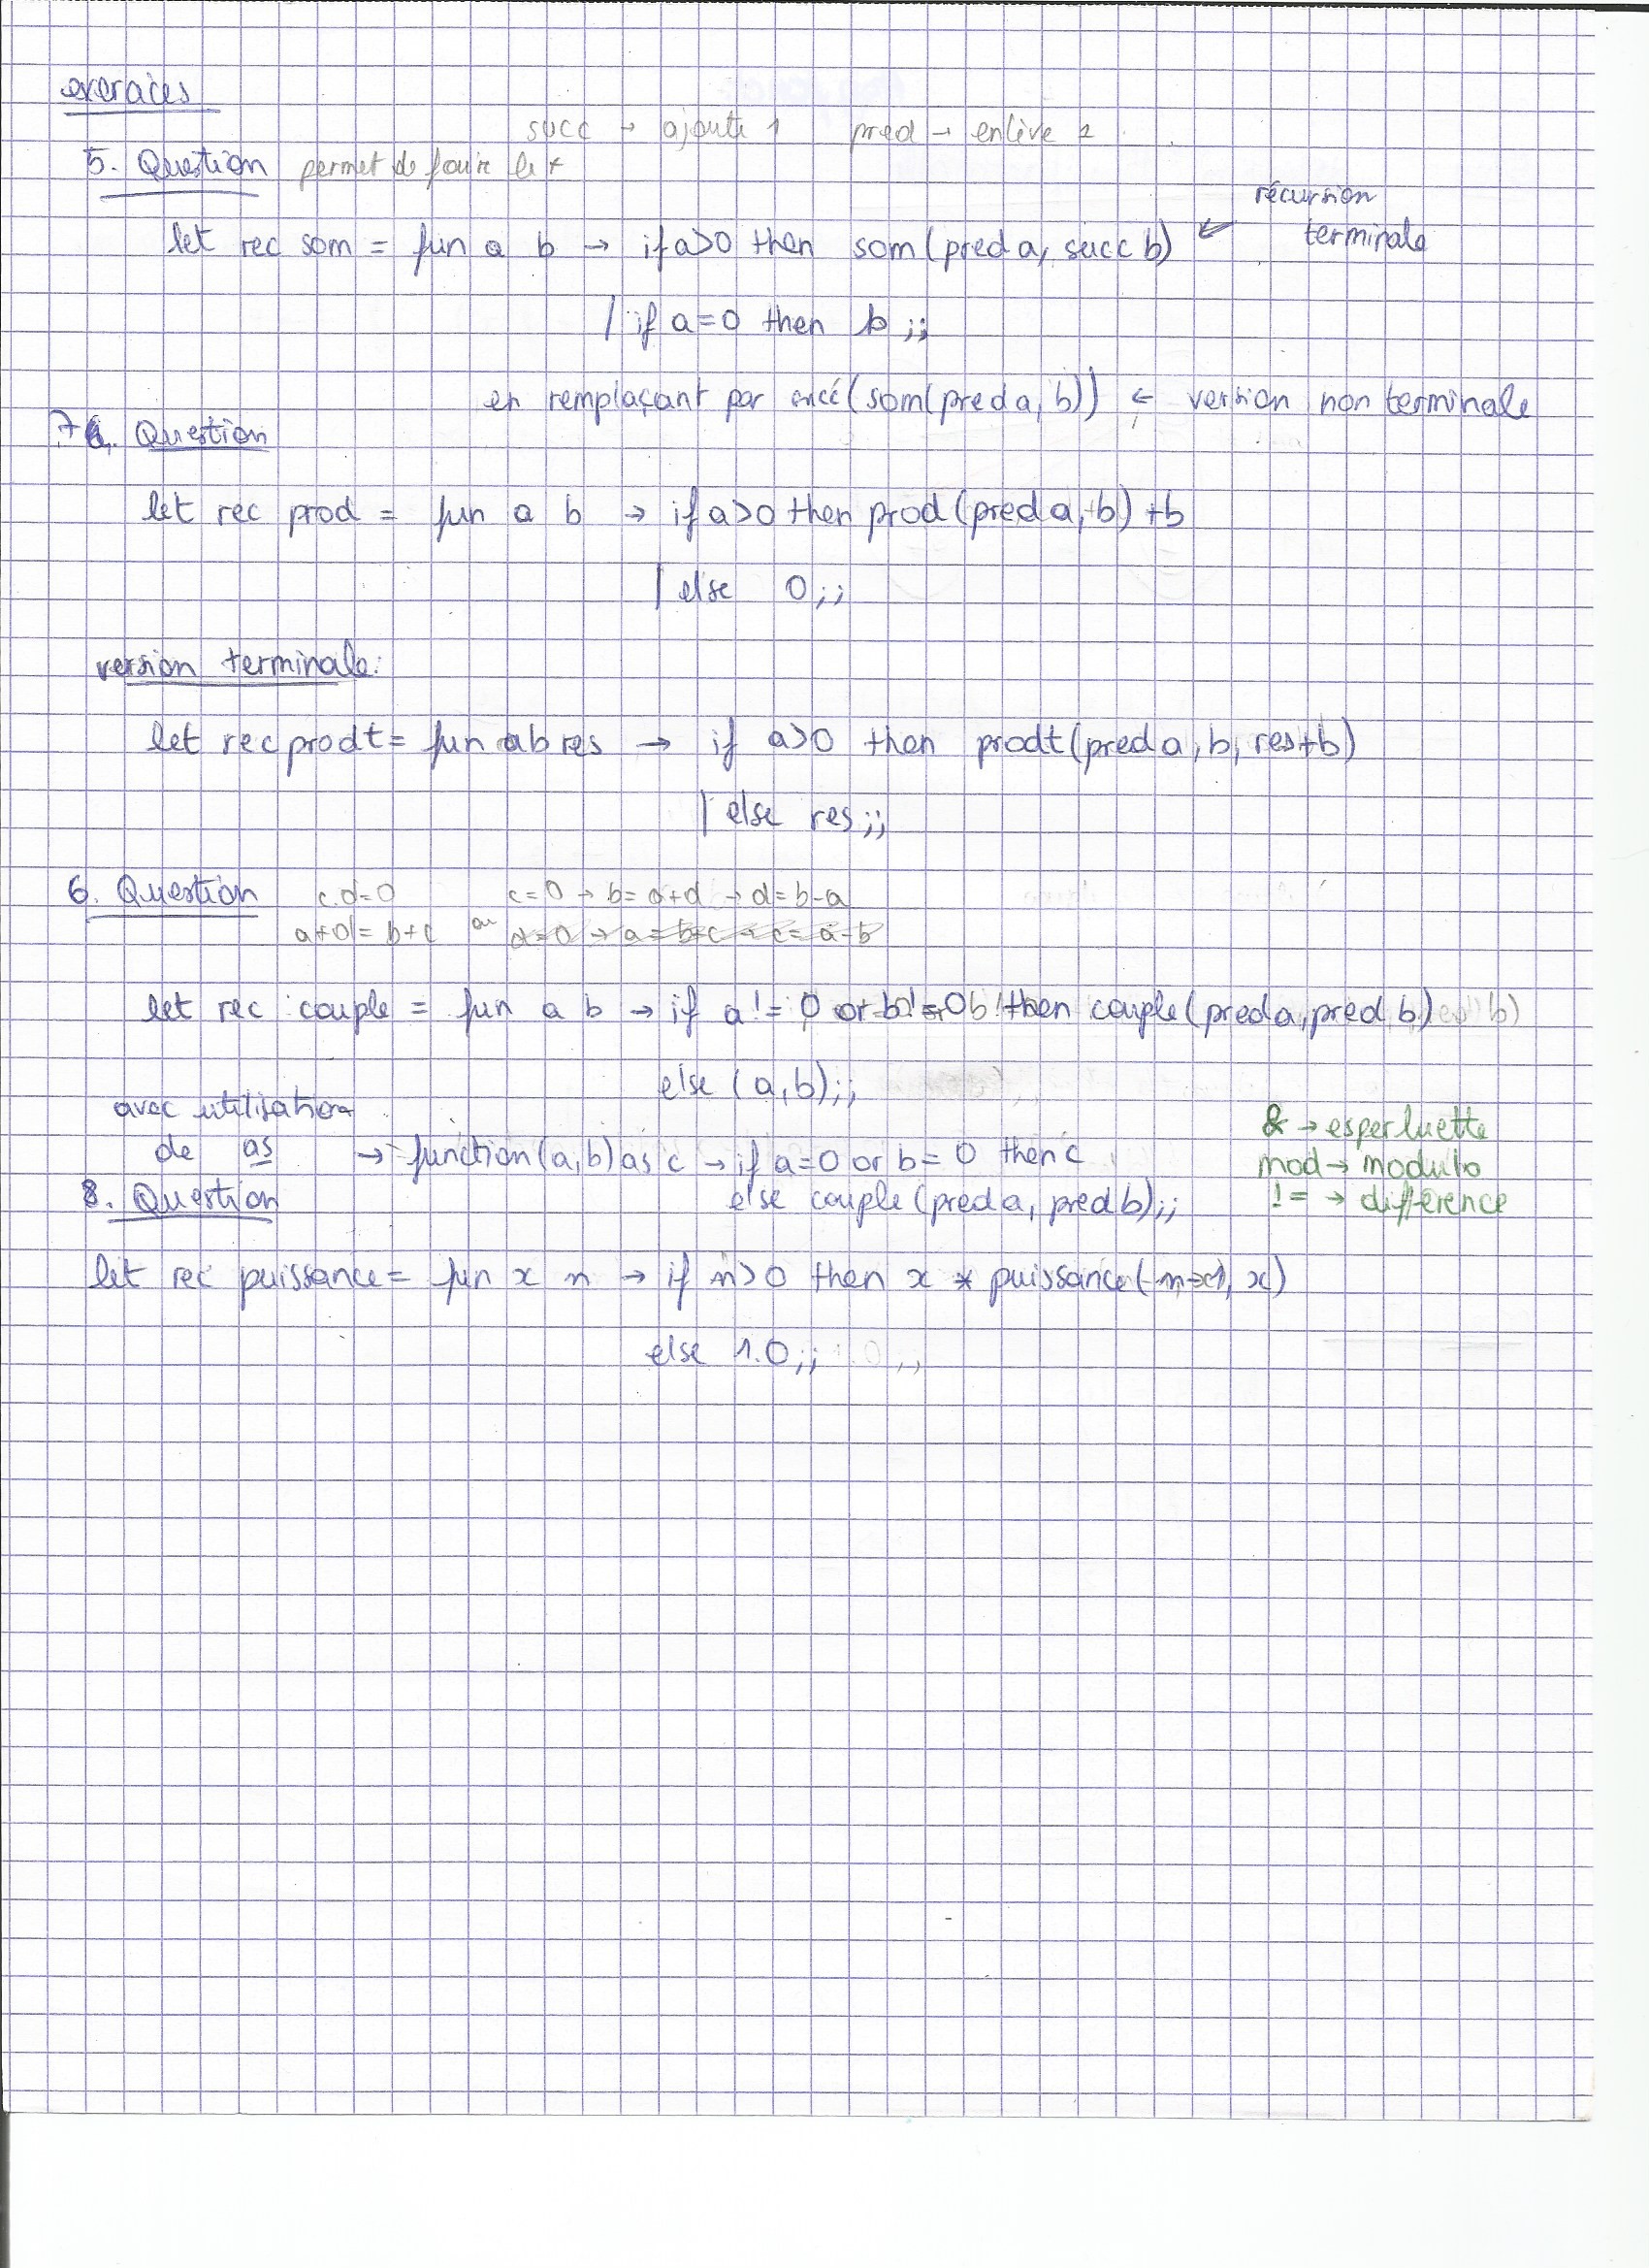 exercices
succ → ajoute 1 pred → enlève 1
5. Question permet de faire le +
récursion
let rec som = fun a b → if a>0 then som(pred a, succ b) ← terminale
| if a=0 then b ;;
en remplaçant par succ(som(pred a, b)) ← version non terminale
7. Question
let rec prod = fun a b → if a>0 then prod(pred a, b) +b
| else 0;;
version terminale:
let rec prodt = fun a b res → if a>0 then prodt(pred a, b, res+b)
| else res;;
6. Question c.d=0 c=0 → b=a+d → d=b-a
a+d=b+c ou d=0 → a=b+c → c=a-b
let rec couple = fun a b → if a != 0 or b != 0 then couple(pred a, pred b)
else (a,b);;
avec utilisation
& → esperluette
de as → function(a,b) as c → if a=0 or b=0 then c
mod → modulo
8. Question
else couple(pred a, pred b);;
!= → différence
let rec puissance = fun x n → if n>0 then x * puissance(n-1, x)
else 1.0;;